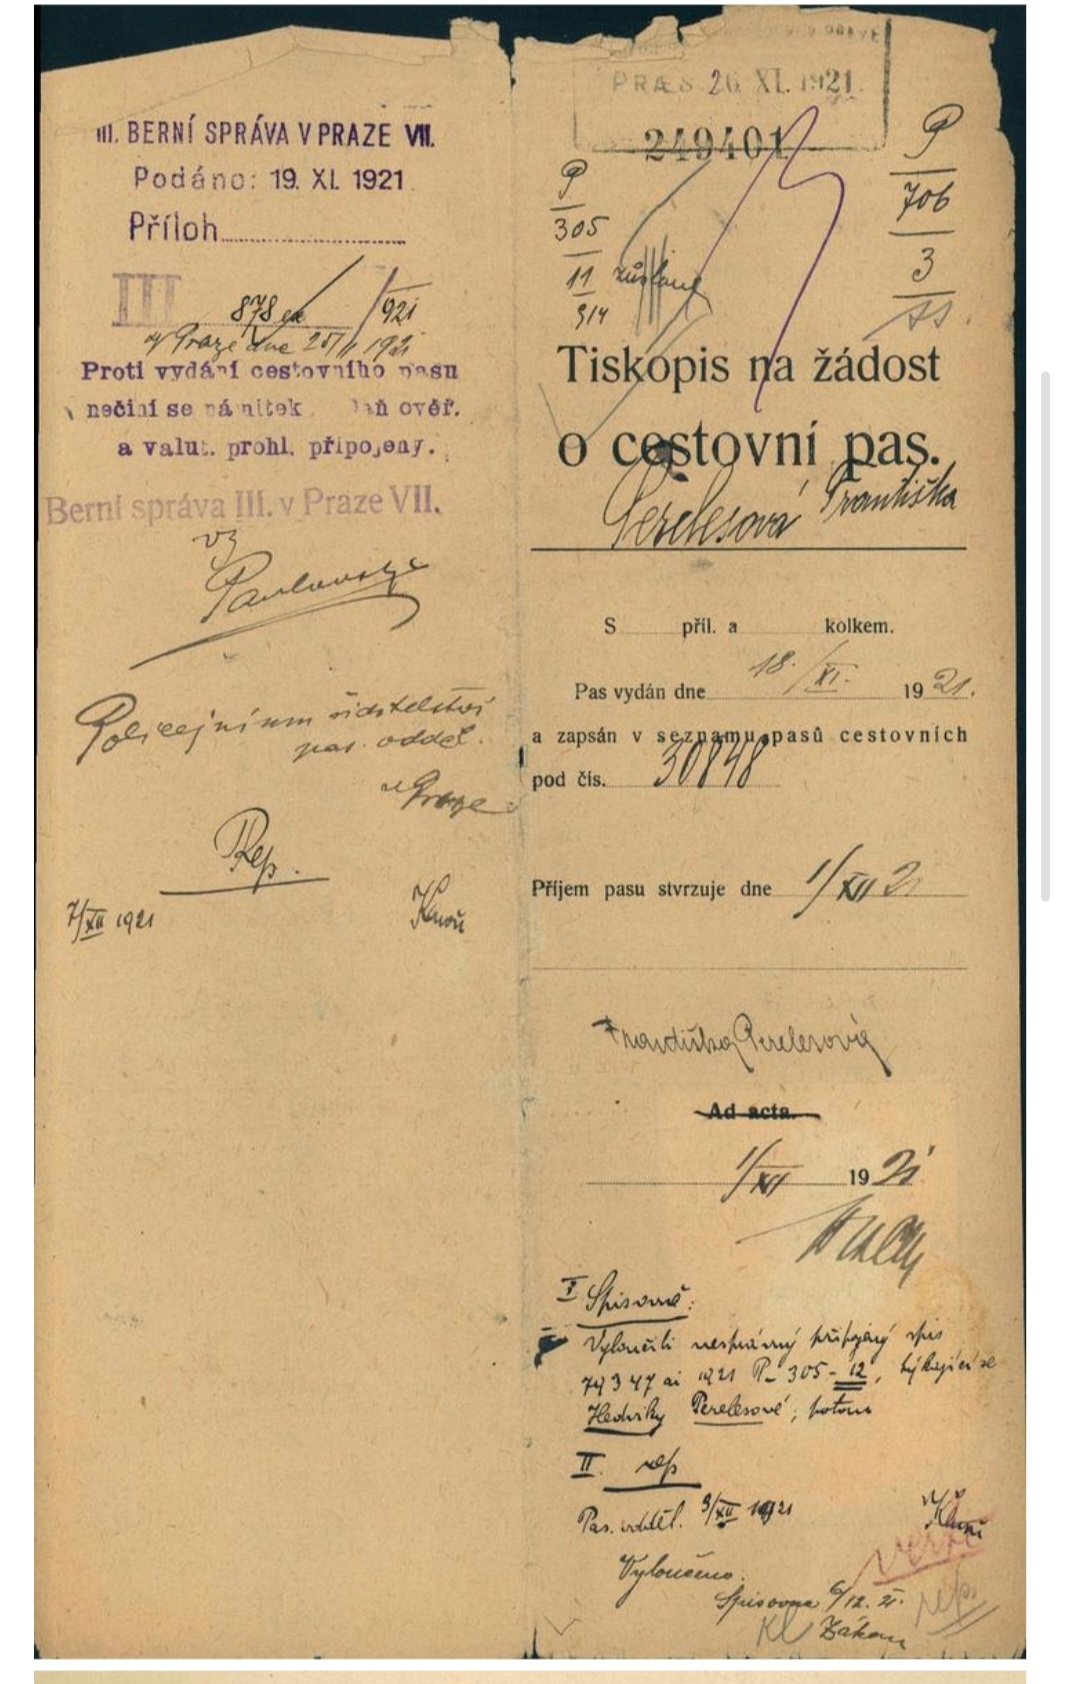 III. BERNÍ SPRÁVA V PRAZE VII.
Podáno: 19. XI. 1921
Příloh
III 878 ex /921
V Praze dne 25/11 1921
Proti vydání cestovního pasu
nečiní se námitek. Daň ověř.
a valut. prohl. připojeny.
Berní správa III. v Praze VII.
vz
Policejnímu ředitelství
pas. odděl.
v Praze
Rep.
7/XII 1921
PRAES 26 XI. 1921
249401
P
305
11
914
zůstane
P
706
3
Tiskopis na žádost
o cestovní pas.
Perelesová Františka
S příl. a kolkem.
Pas vydán dne 18./XI. 1921.
a zapsán v seznamu pasů cestovních
pod čís. 30848
Příjem pasu stvrzuje dne 1/XII 21
Františka Perelesová
Ad acta.
1/XII 1921
I Spisovně:
Vyloučiti nesprávný připojený spis
79347 ai 1921 P-305-12, týkající se
Hedviky Perelesové; potom
II. rep
Pas. odděl. 3/XII 1921
Vyloučeno.
Spisovna 6/12. 21.
rep.